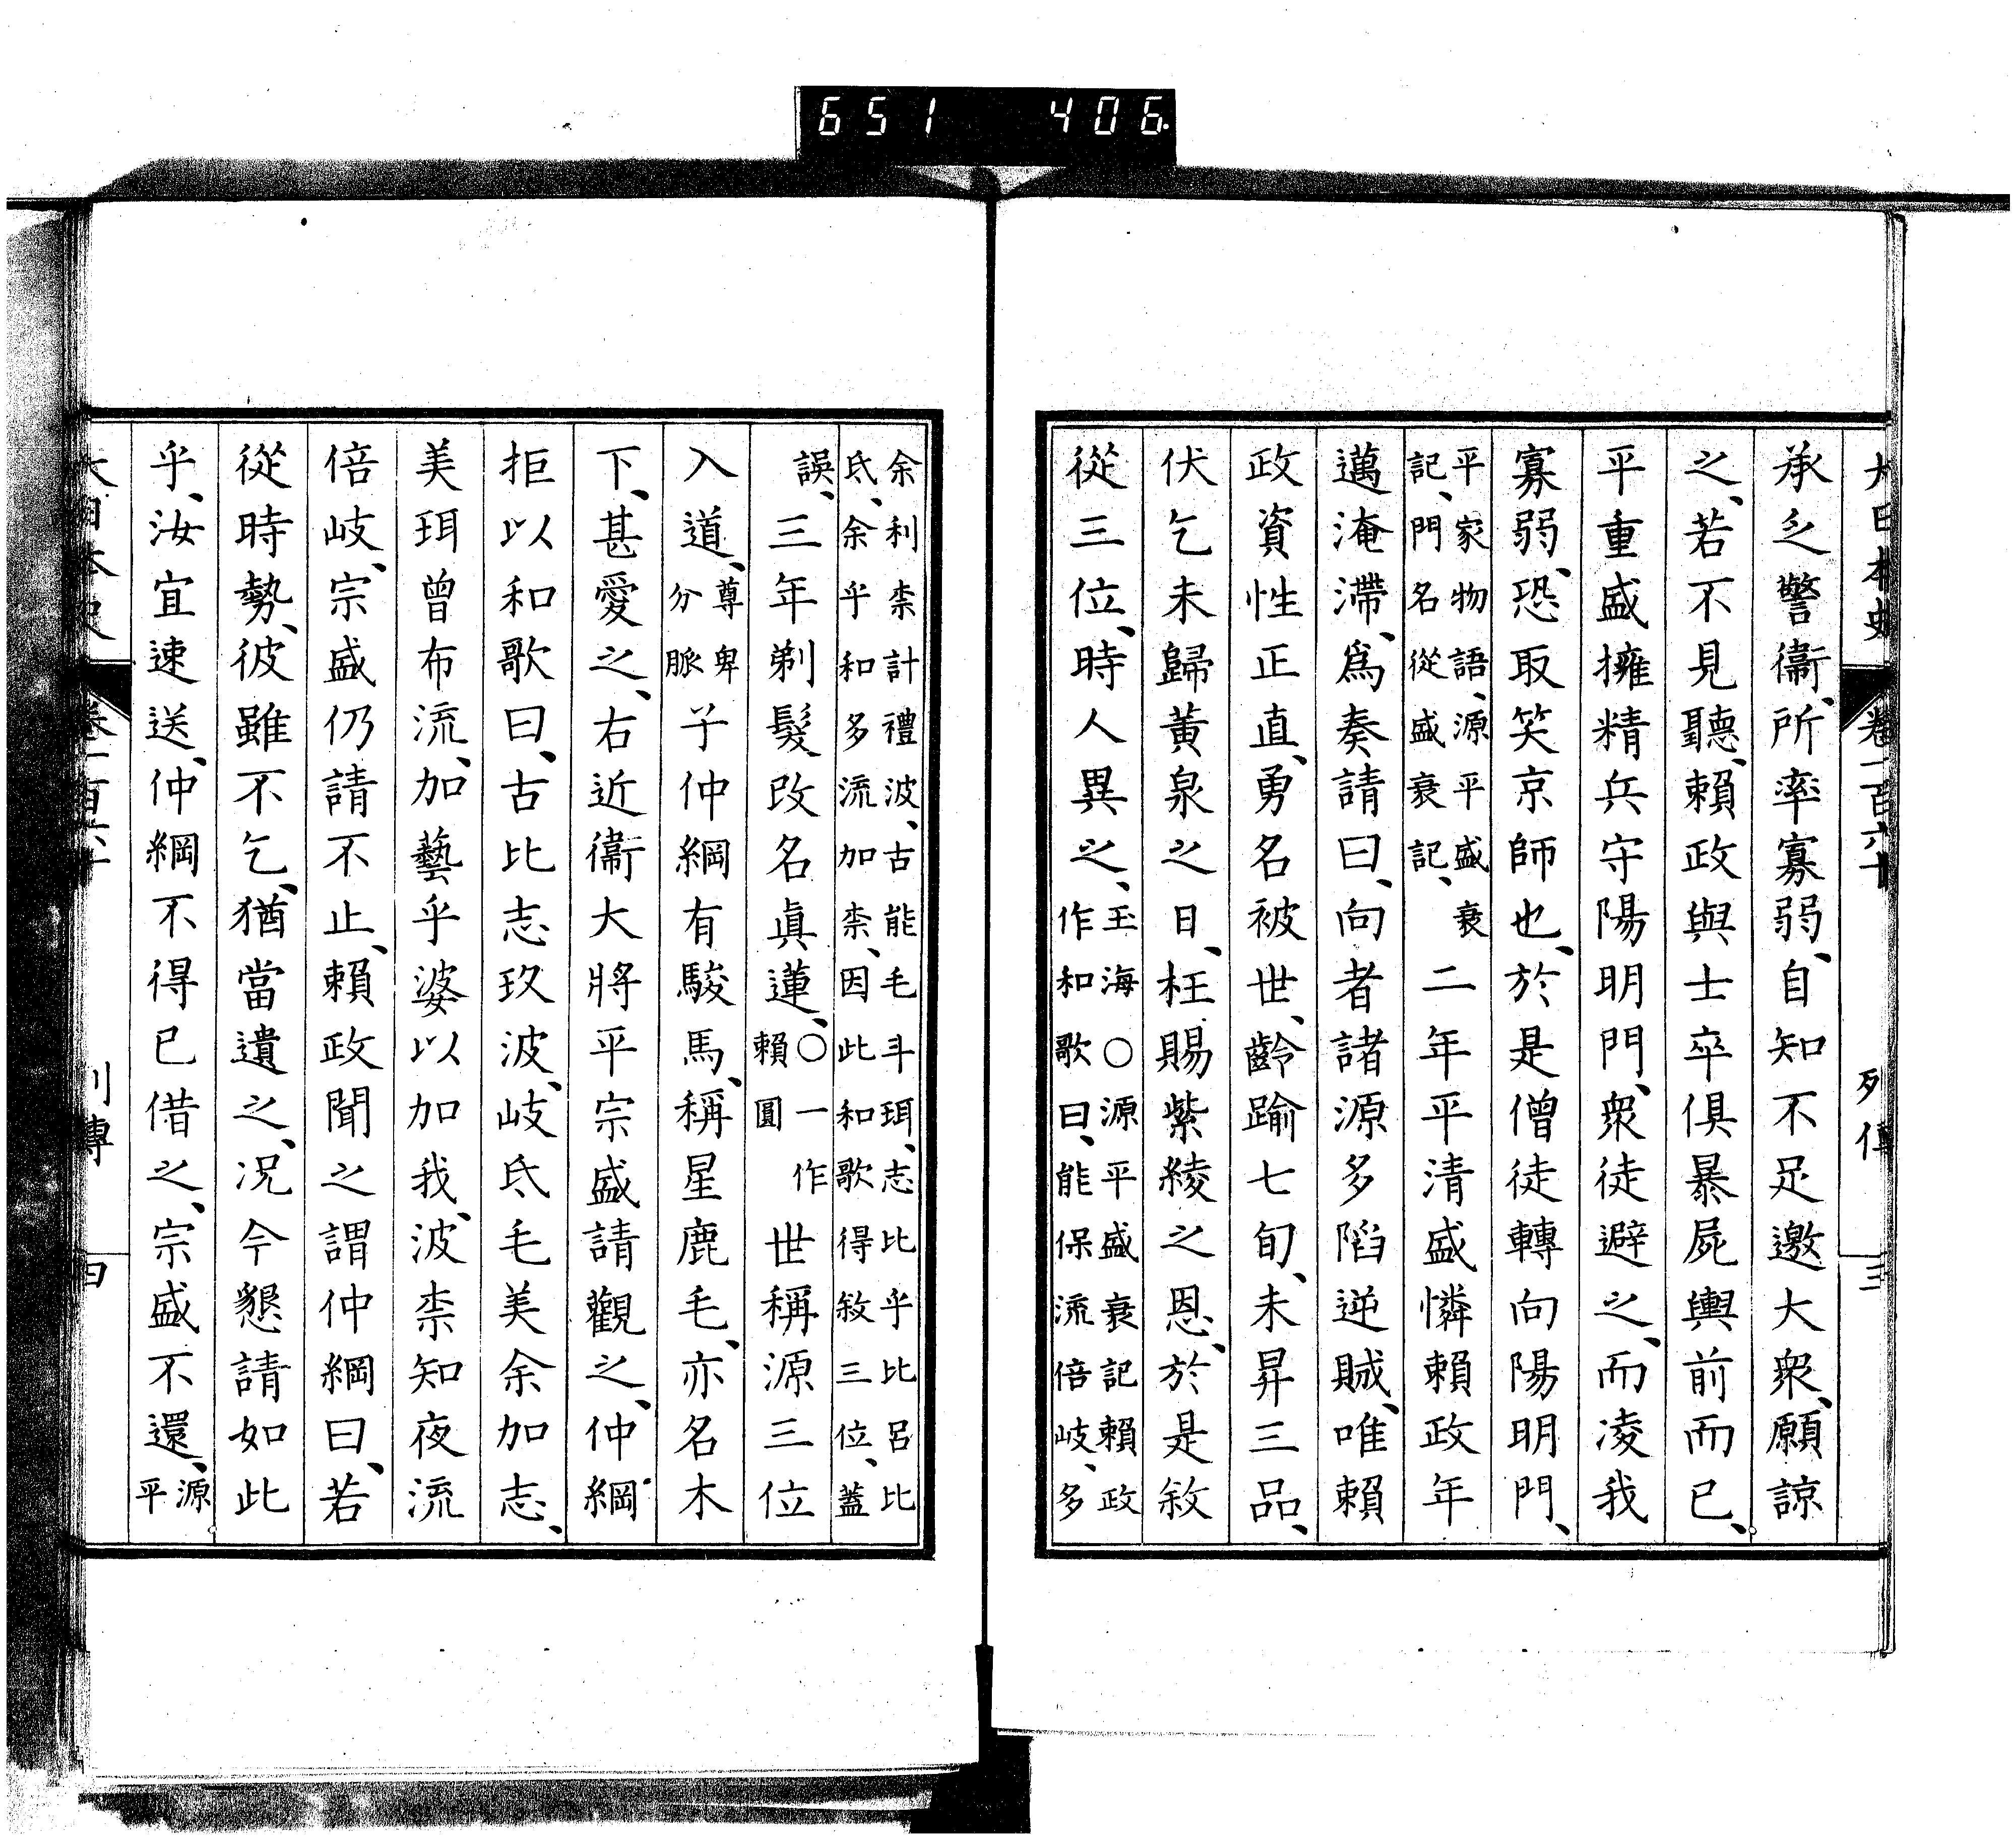 651 406
大日本史 卷一百六十 列傳 三
承乏警衞、所率寡弱、自知不足邀大衆、願諒
之、若不見聽、賴政與士卒俱暴屍輿前而已、
平重盛擁精兵守陽明門、衆徒避之、而凌我
寡弱、恐取笑京師也、於是僧徒轉向陽明門、
平家物語、源平盛衰
記、門名從盛衰記、
二年平清盛憐賴政年
邁淹滯、爲奏請曰、向者諸源多陷逆賊、唯賴
政資性正直、勇名被世、齡踰七旬、未昇三品、
伏乞未歸黃泉之日、枉賜紫綾之恩、於是敘
從三位、時人異之、
玉海○源平盛衰記賴政
作和歌曰、能保流倍岐、多
余利柰計禮波、古能毛斗珥、志比乎比呂比
氐、余乎和多流加柰、因此和歌得敘三位、蓋
誤、
三年剃髮改名眞蓮、
○一作
賴圓
世稱源三位
入道、
尊卑
分脈
子仲綱有駿馬、稱星鹿毛、亦名木
下、甚愛之、右近衞大將平宗盛請觀之、仲綱
拒以和歌曰、古比志玖波、岐氐毛美余加志、
美珥曾布流、加藝乎婆以加我、波柰知夜流
倍岐、宗盛仍請不止、賴政聞之謂仲綱曰、若
從時勢、彼雖不乞、猶當遺之、况今懇請如此
乎、汝宜速送、仲綱不得已借之、宗盛不還、
源
平
大日本史 卷一百六十 列傳 四